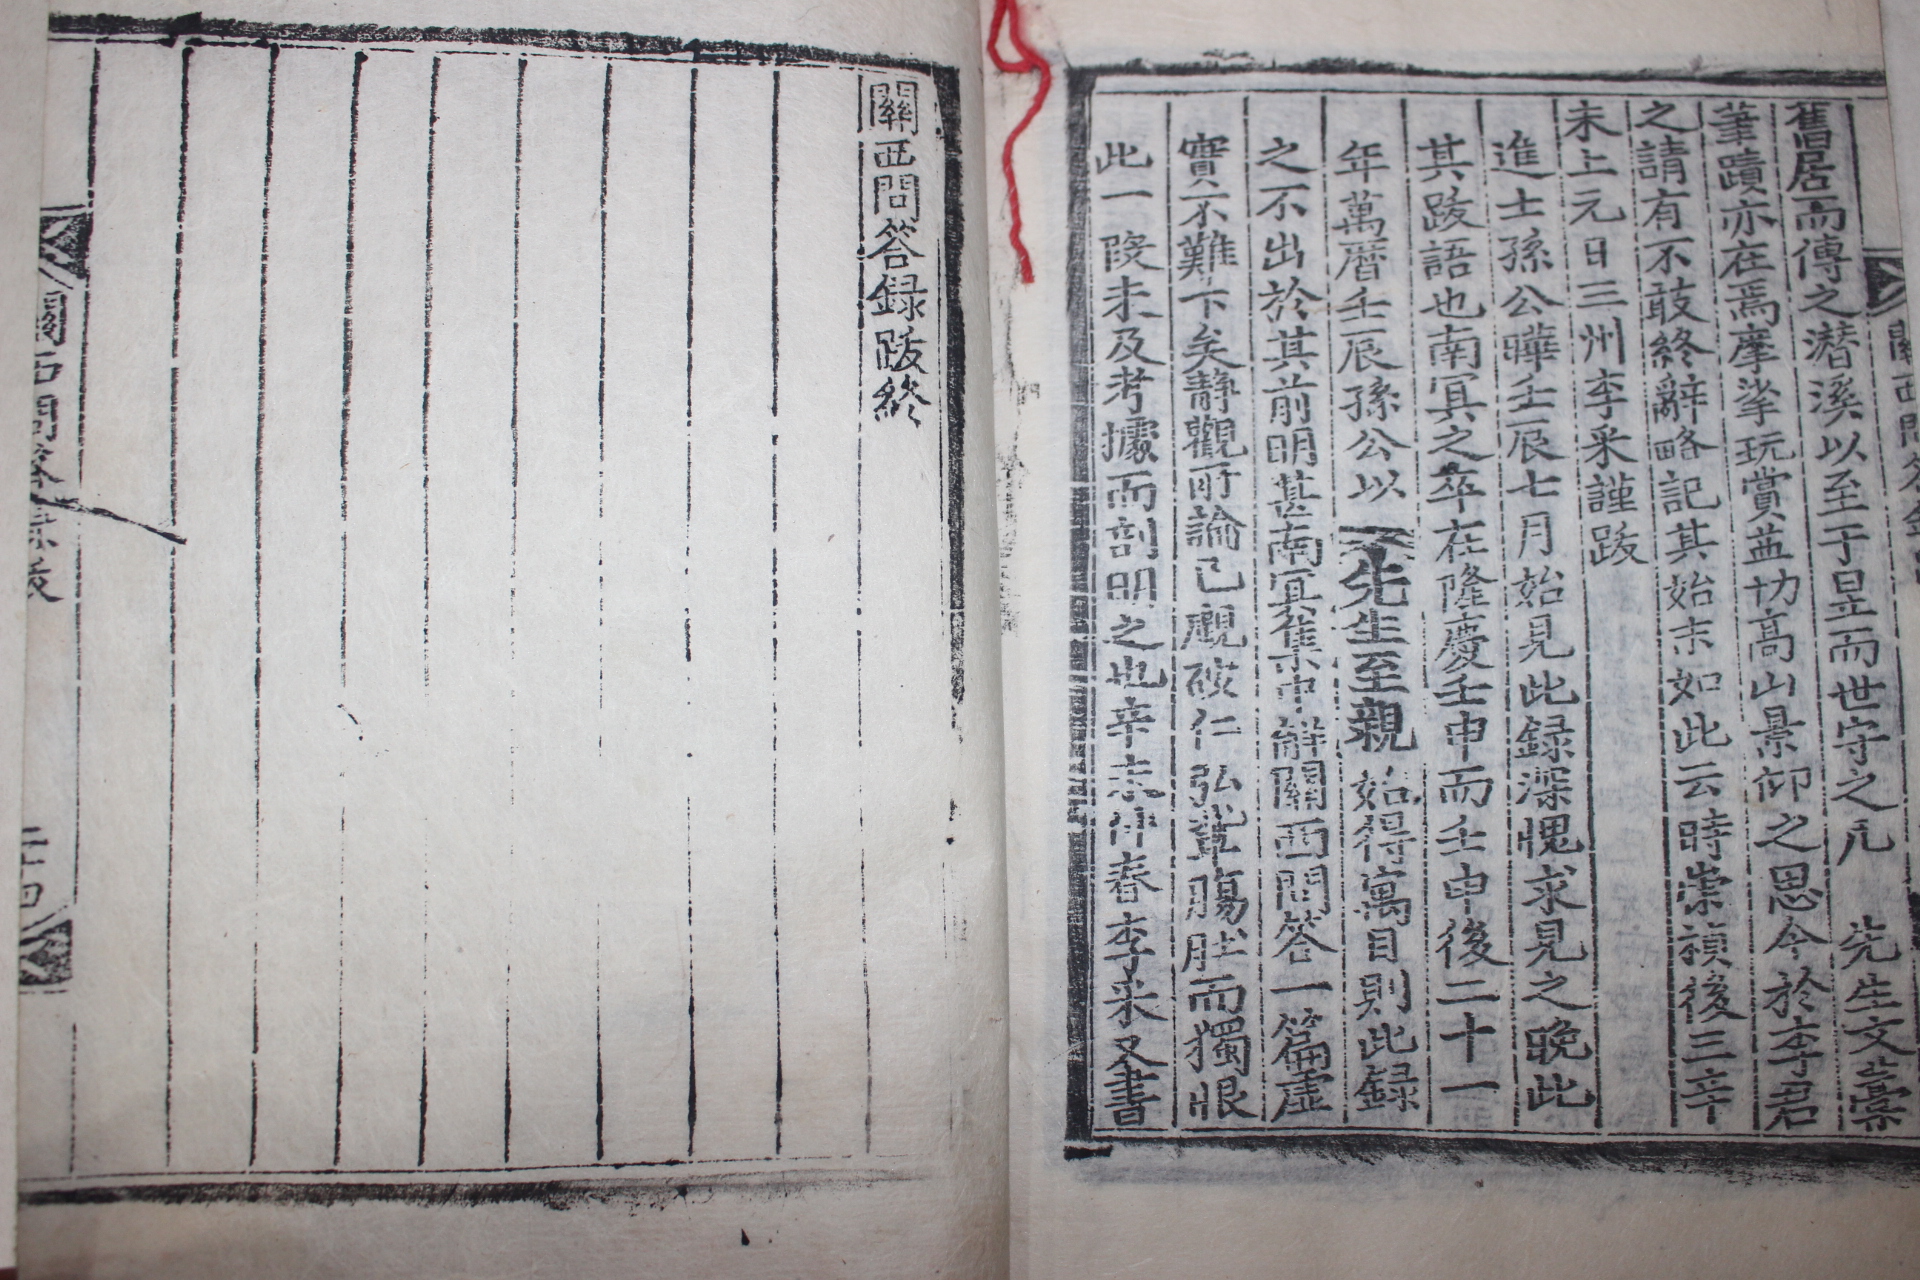 舊居而傳之潛溪以至于是而世守之凡 先生文藁
筆蹟亦在焉摩挲玩賞益切高山景仰之思今於李君
之請有不敢終辭略記其始末如此云時崇禎後三辛
未上元日三州李采謹跋
進士孫公曄壬辰七月始見此録深愧求見之晩此
其跋語也南冥之卒在隆慶壬申而壬申後二十一
年萬曆壬辰孫公以先生至親始得寓目則此録
之不出於其前明甚南冥集中解關西問答一篇虛
實不難下矣靜觀所論已覰破仁弘輩膓肚而獨恨
此一段未及考據而剖明之也辛未仲春李采又書
關西問答録跋終
關西問答録跋
二十四